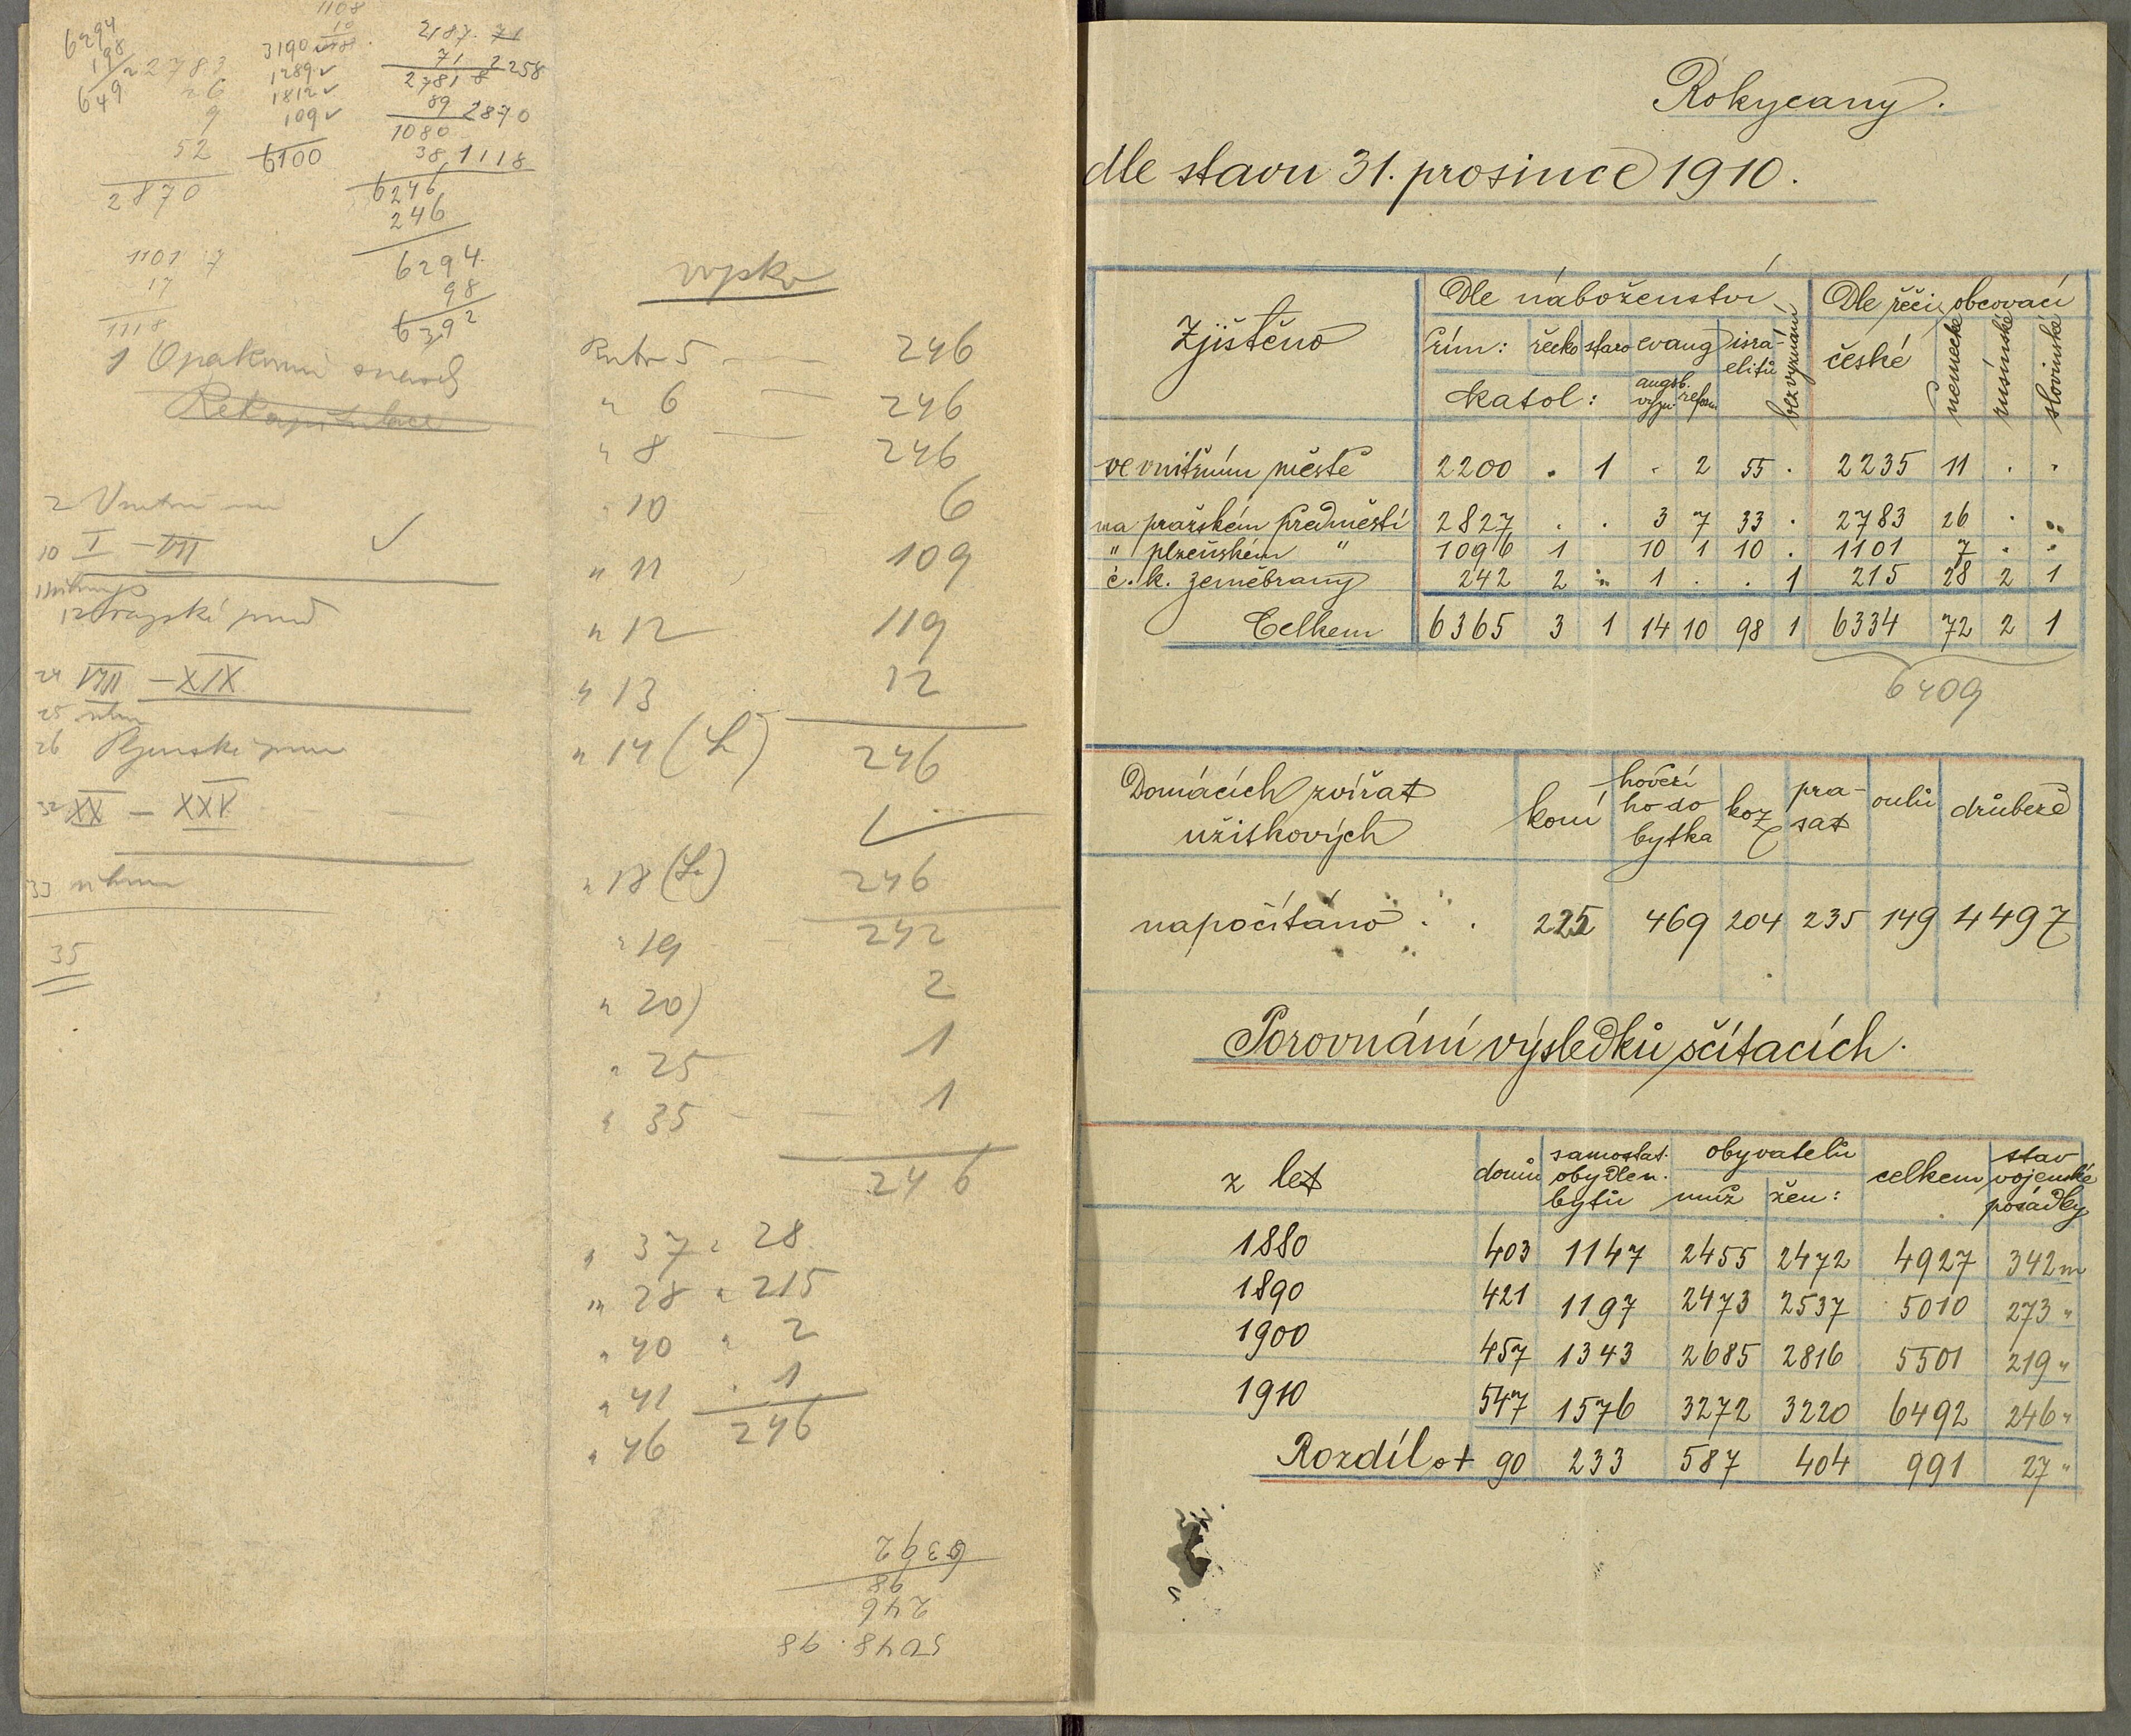 6294
198
649
2783
26
9
52
2870
1108
10
3190
1289 ✓
1812 ✓
109 ✓
6100
2187. 71
71 2258
2781 8
89 2870
1080
38 1118
6246
246
6294.
98
6392
1101 7
17
1118
1 Opakovní
Rekapitulace
2
10 I – VII ✓
12
24 VIII – XIX
25
26 Plzenské
32 XX – XXV
33
35
vojsko
Rubr 5 — 246
" 6 — 246
" 8 — 246
" 10 6
" 11 109
" 12 119
" 13 12
" 14 (L) 246
" 18 (L) 246
" 19 242
" 20) 2
" 25 1
" 35 1
246
" 37 " 28
" 28 " 215
" 40 " 2
" 41 . 1
" 46 246
6392
98
246
5048. 98
Rokycany.
dle stavu 31. prosince 1910.
Zjištěno
Dle náboženství
Dle řeči obcovací
řím: řecko staro evang isra-elitů bez vyznání
katol: augsb. vyzn. reform.
české německé rusínské slovinské
ve vnitřním městě 2200 . 1 . 2 55 . 2235 11 . .
na pražském předměstí 2827 . . 3 7 33 . 2783 26 . .
" plzeňském " 1096 1 10 1 10 . 1101 7 . .
c. k. zeměbrany 242 2 . 1 . . 1 215 28 2 1
Celkem 6365 3 1 14 10 98 1 6334 72 2 1
6409
Domácích zvířat
užitkových
koní hověziho dobytka koz prasat oulů drůbeže
napočítáno . . 225 469 204 235 149 4497
Porovnání výsledků sčítacích.
z let domů samostat. obydlen. bytů obyvatelů muž žen: celkem stav vojenské posádky
1880 403 1147 2455 2472 4927 342 m
1890 421 1197 2473 2537 5010 273 "
1900 457 1343 2685 2816 5501 219 "
1910 547 1576 3272 3220 6492 246 "
Rozdíl + 90 233 587 404 991 27 "